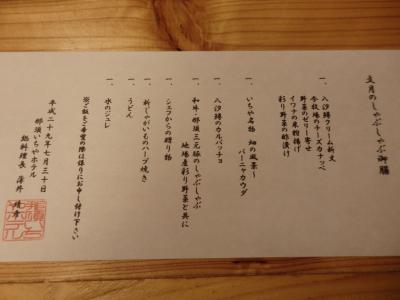 文月のしゃぶしゃぶ御膳
一、八汐鱒クリーム新丈
今牧場のチーズカナッペ
野菜のゼリー寄せ
イワナの米粉揚げ
彩り野菜の酢漬け
一、いちや名物 畑の風景~
バーニャカウダ
一、八汐鱒のカルパッチョ
一、和牛・那須三元豚のしゃぶしゃぶ
地場産彩り野菜と共に
一、シェフからの贈り物
一、新じゃがいものハーブ焼き
一、うどん
一、水のジュレ
※ご飯をご希望の際は係りにお申し付け下さい
平成二十九年七月三十日
那須いちやホテル
総料理長 薄井